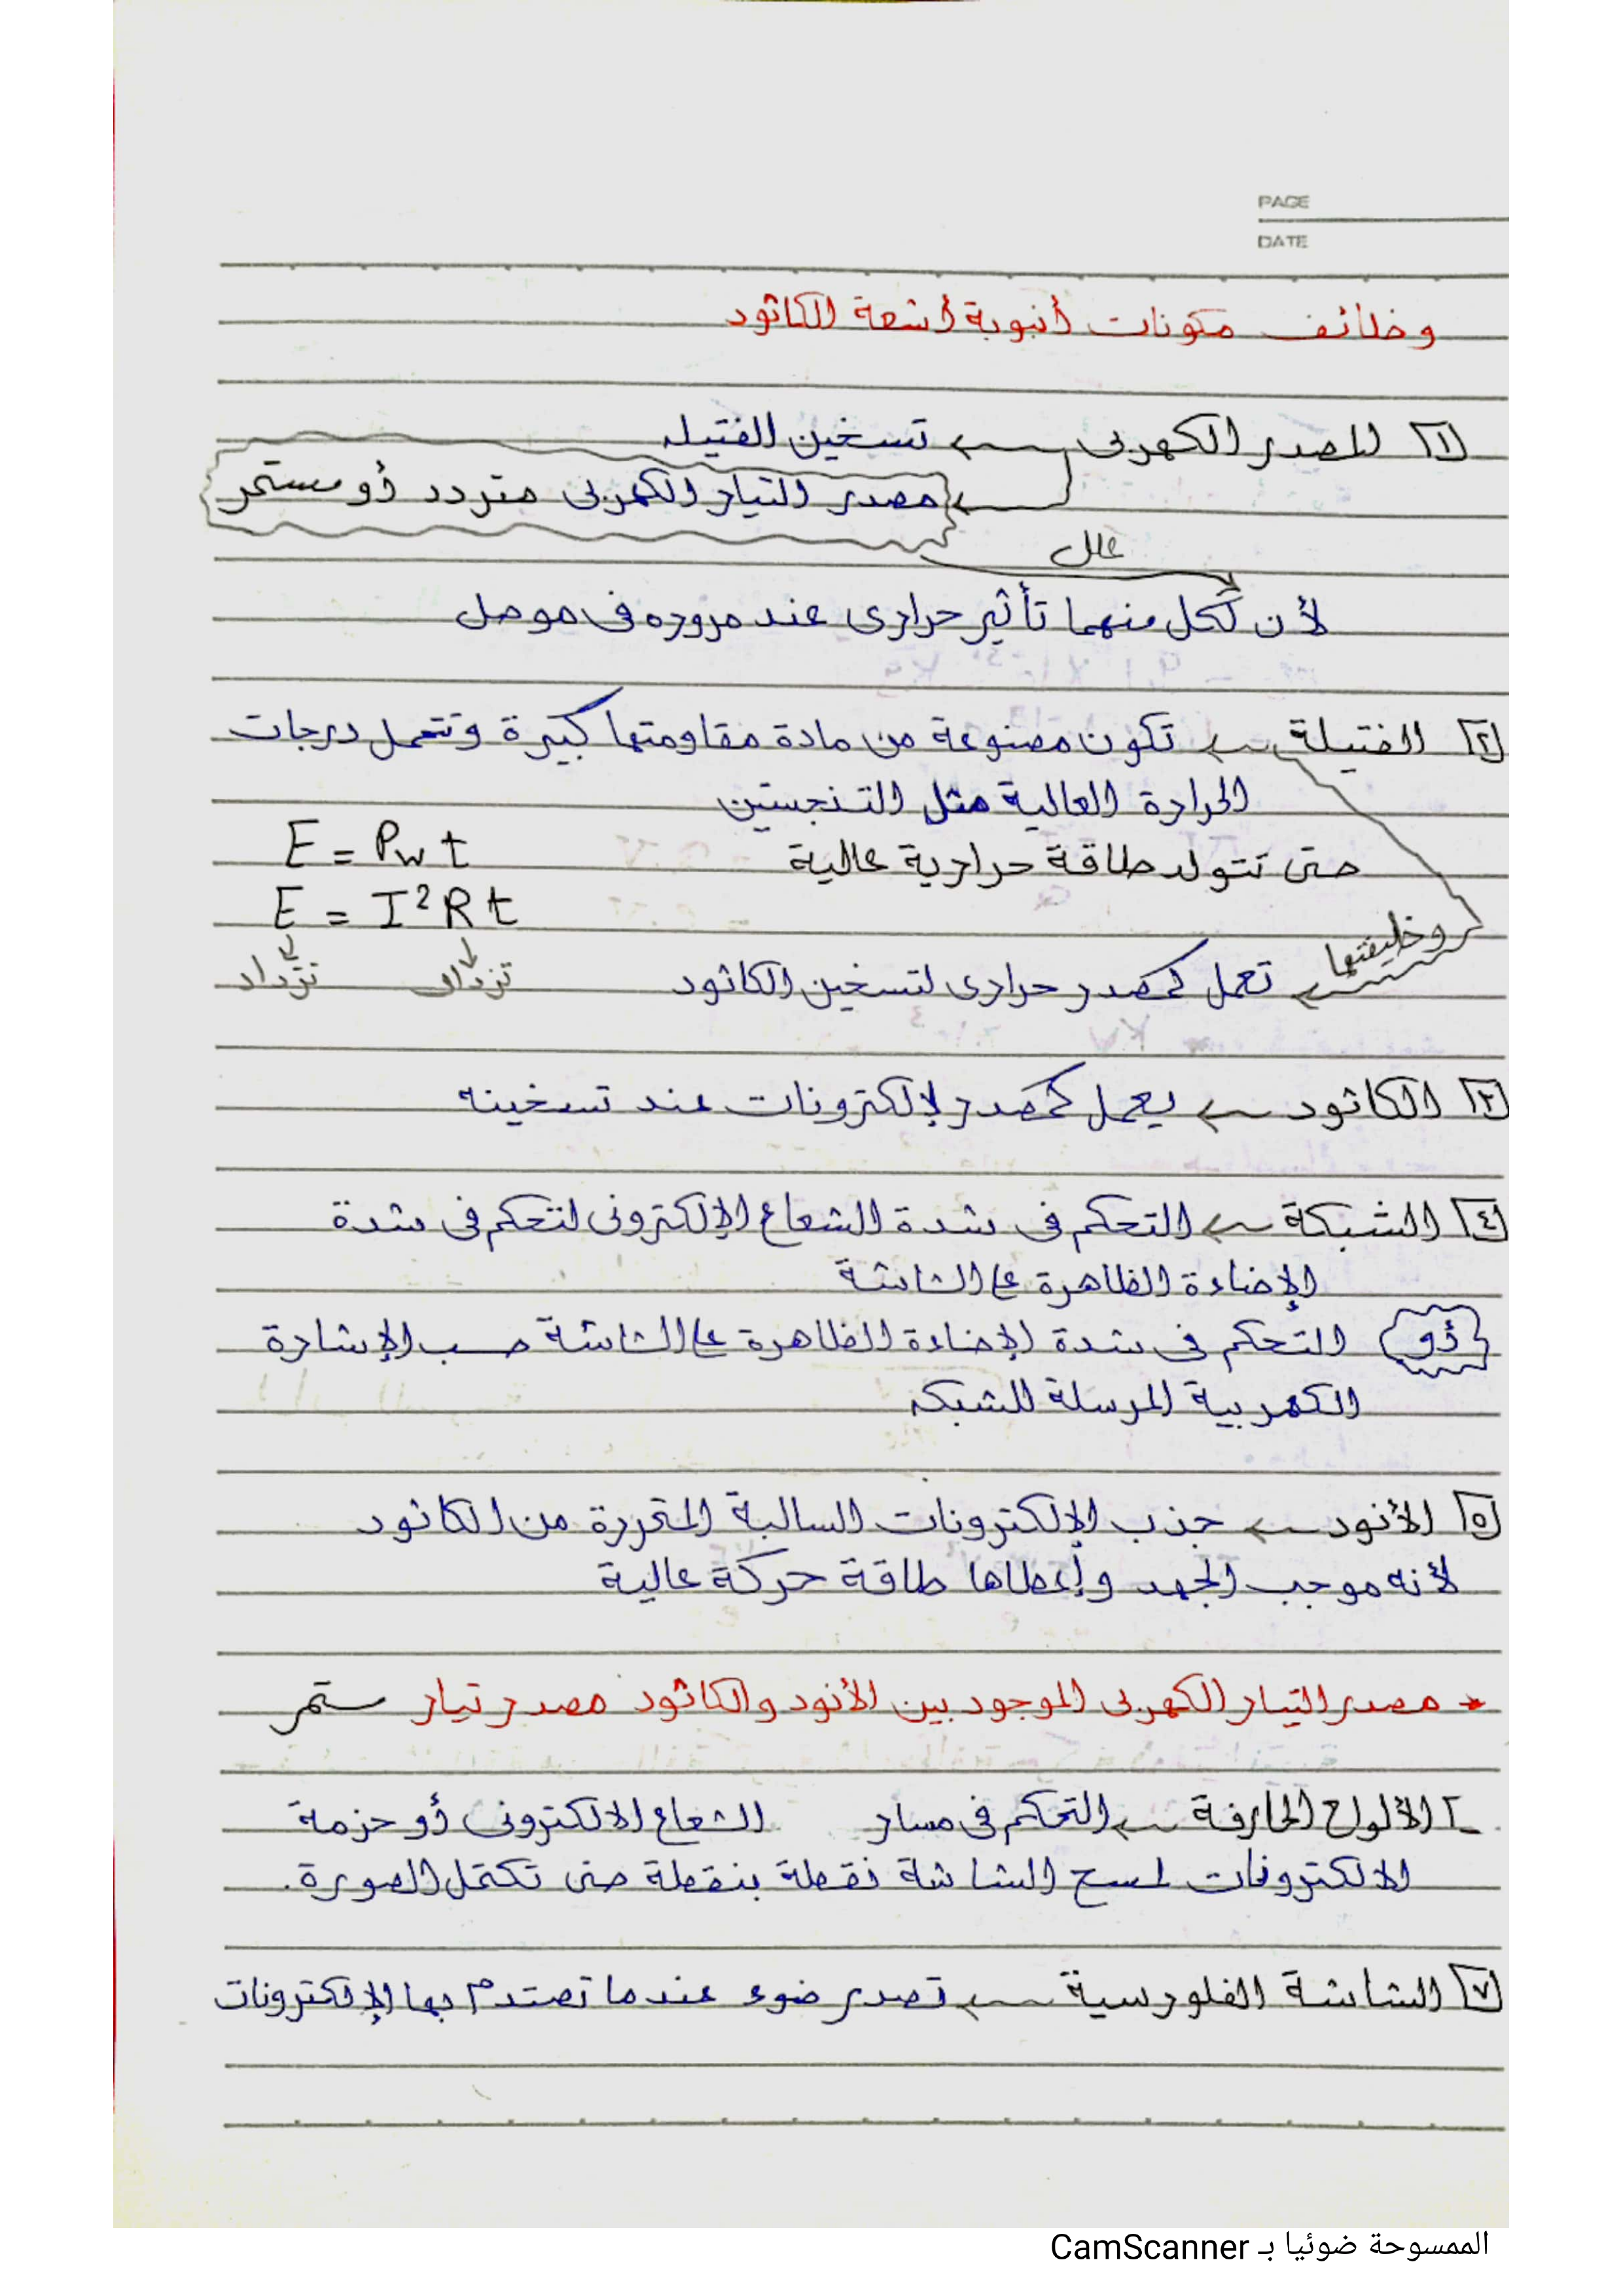 PAGE
DATE
وظائف مكونات أنبوبة أشعة الكاثود
١ المصدر الكهربى ← تسخين الفتيله
← مصدر التيار الكهربى متردد أو مستمر
علل
لأن لكل منهما تأثير حرارى عند مروره فى موصل
٢ الفتيلة ← تكون مصنوعة من مادة مقاومتها كبيرة وتتحمل درجات
الحرارة العالية مثل التنجستين
حتى تتولد طاقة حرارية عالية E = Pw t
E = I²R t
وظيفتها ← تعمل كمصدر حرارى لتسخين الكاثود تزداد تزداد
٣ الكاثود ← يعمل كمصدر لإلكترونات عند تسخينه
٤ الشبكة ← التحكم فى شدة الشعاع الإلكترونى لتحكم فى شدة
الإضاءة الظاهرة على الشاشة
أو التحكم فى شدة الإضاءة الظاهرة على الشاشة حسب الإشارة
الكهربية المرسلة للشبكه
٥ الأنود ← جذب الإلكترونات السالبة المتحررة من الكاثود
لأنه موجب الجهد وإعطاها طاقة حركة عالية
* مصدر التيار الكهربى الموجود بين الأنود والكاثود مصدر تيار ستمر
الألواح الحارفة ← التحكم فى مسار الشعاع الالكترونى أو حزمة
الالكترونات لمسح الشاشة نقطة بنقطة حتى تكتمل الصورة.
٧ الشاشة الفلورسية ← تصدر ضوء عندما تصتدم بها الإلكترونات
الممسوحة ضوئيا بـ CamScanner